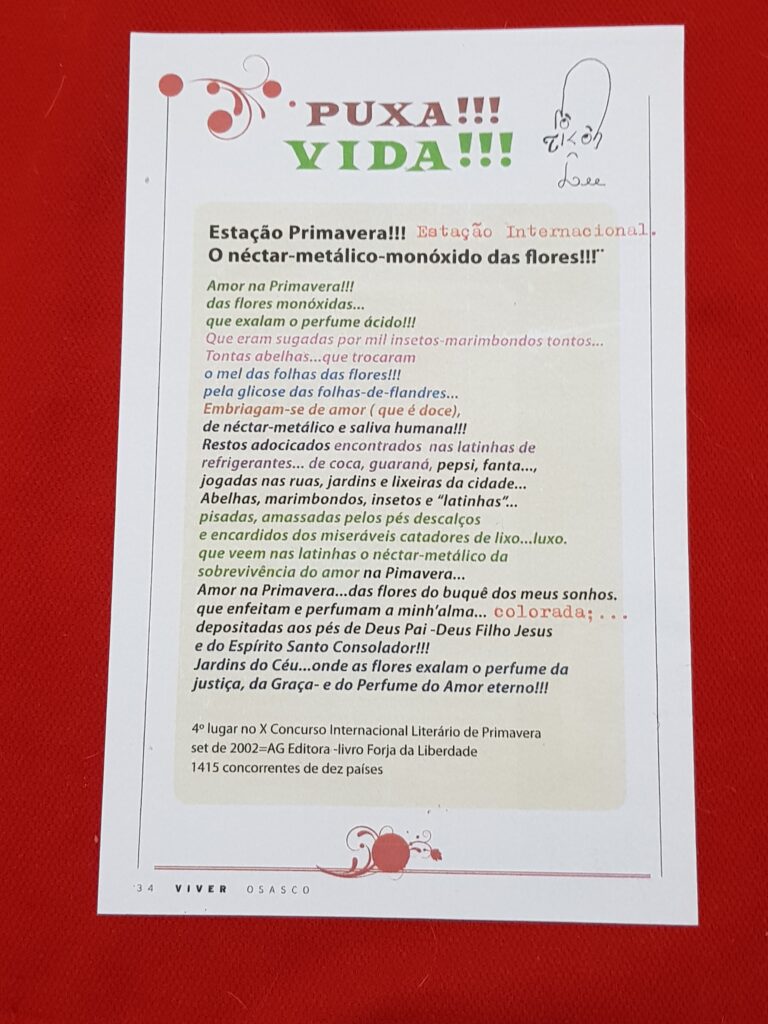 PUXA!!!
VIDA!!!
Estação Primavera!!! Estação Internacional.
O néctar-metálico-monóxido das flores!!!¨
Amor na Primavera!!!
das flores monóxidas...
que exalam o perfume ácido!!!
Que eram sugadas por mil insetos-marimbondos tontos...
Tontas abelhas...que trocaram
o mel das folhas das flores!!!
pela glicose das folhas-de-flandres...
Embriagam-se de amor ( que é doce),
de néctar-metálico e saliva humana!!!
Restos adocicados encontrados nas latinhas de
refrigerantes... de coca, guaraná, pepsi, fanta...,
jogadas nas ruas, jardins e lixeiras da cidade...
Abelhas, marimbondos, insetos e “latinhas”...
pisadas, amassadas pelos pés descalços
e encardidos dos miseráveis catadores de lixo...luxo.
que veem nas latinhas o néctar-metálico da
sobrevivência do amor na Pimavera...
Amor na Primavera...das flores do buquê dos meus sonhos.
que enfeitam e perfumam a minh’alma... colorada;...
depositadas aos pés de Deus Pai -Deus Filho Jesus
e do Espírito Santo Consolador!!!
Jardins do Céu...onde as flores exalam o perfume da
justiça, da Graça- e do Perfume do Amor eterno!!!
4º lugar no X Concurso Internacional Literário de Primavera
set de 2002=AG Editora -livro Forja da Liberdade
1415 concorrentes de dez países
34 VIVER OSASCO